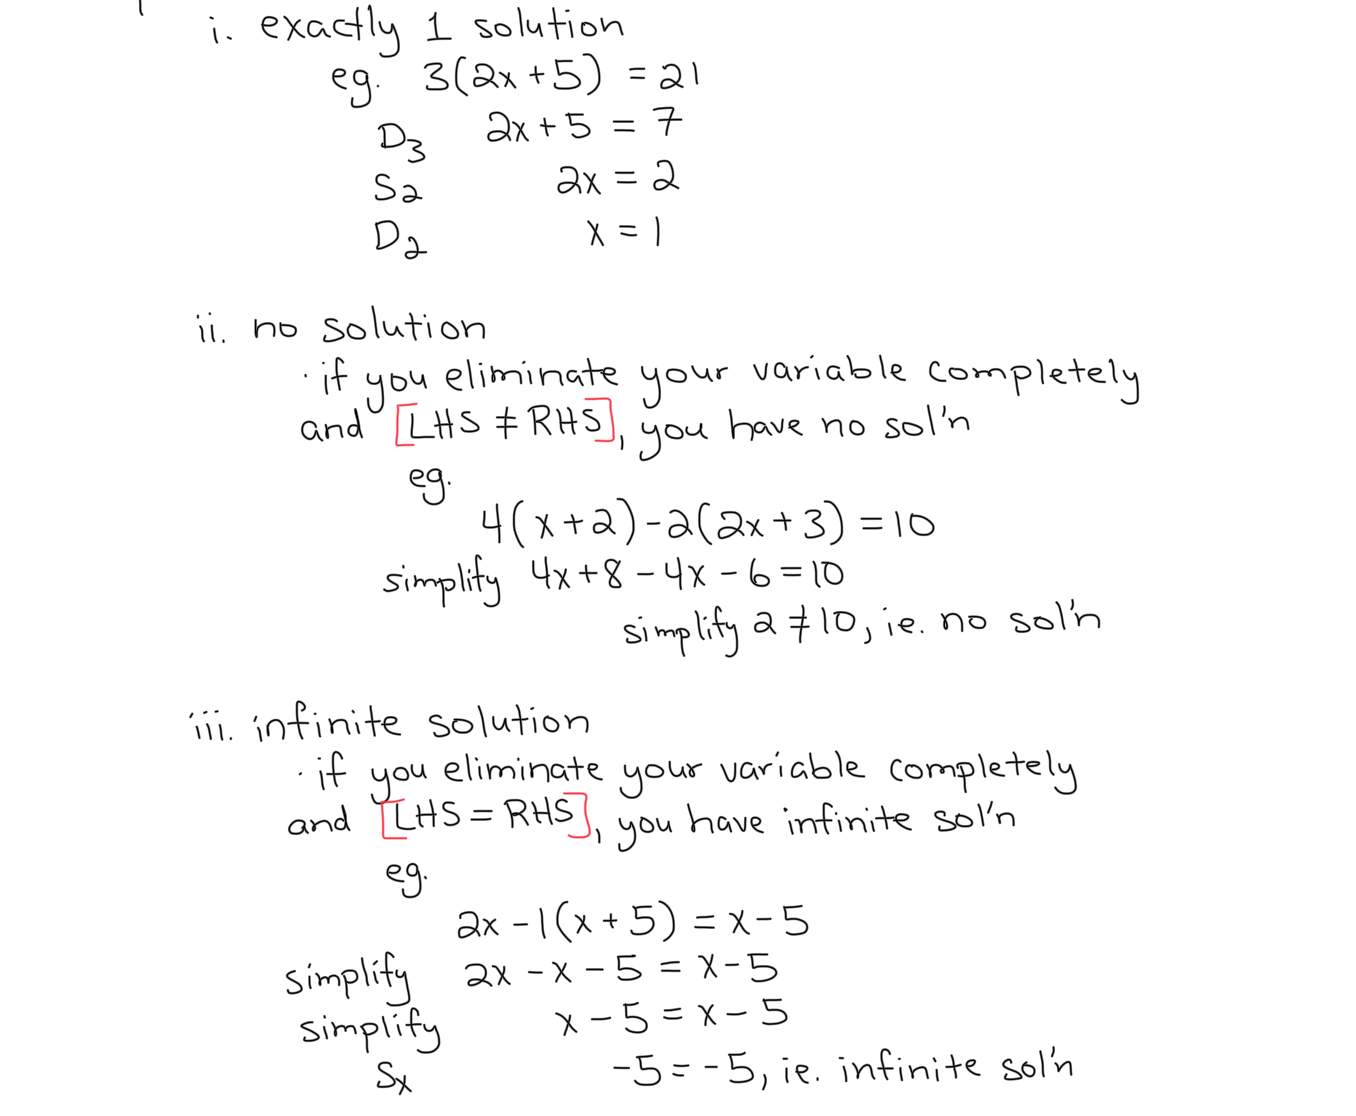 i. exactly 1 solution
eg. 3(2x+5) = 21
D₃ 2x+5 = 7
S₂ 2x = 2
D₂ x = 1
ii. no solution
· if you eliminate your variable completely
and [LHS ≠ RHS], you have no sol'n
eg.
4(x+2)-2(2x+3) = 10
simplify 4x+8-4x-6=10
simplify 2≠10, ie. no sol'n
iii. infinite solution
· if you eliminate your variable completely
and [LHS = RHS], you have infinite sol'n
eg.
2x-1(x+5) = x-5
simplify 2x-x-5 = x-5
simplify x-5 = x-5
Sₓ -5=-5, ie. infinite sol'n